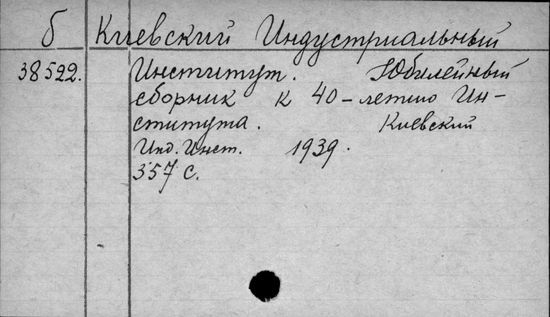 б Киевский Индустриальный
38522. Институт. Юбилейный
сборник к 40-летию Ин-
ститута. Киевский
Инд. Инст. 1939.
357 с.